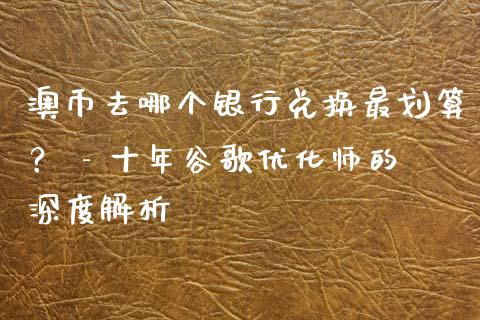 澳币去哪个银行兑换最划算
？ - 十年谷歌优化师的
深度解析